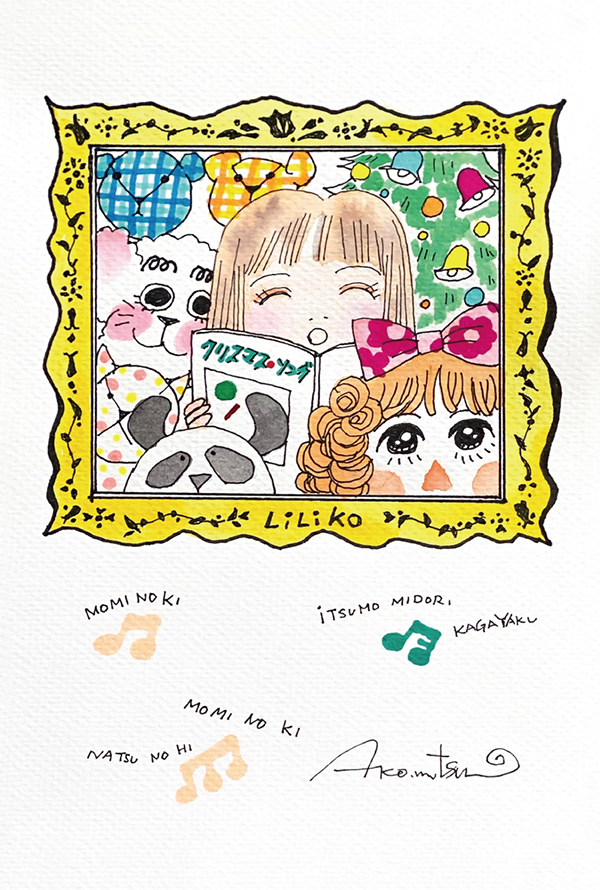 クリスマス・ソング
LiLiKO
MOMI NO KI
iTSUMO MIDORI
KAGAYAKU
MOMI NO KI
NATSU NO HI
Ako.mitsu